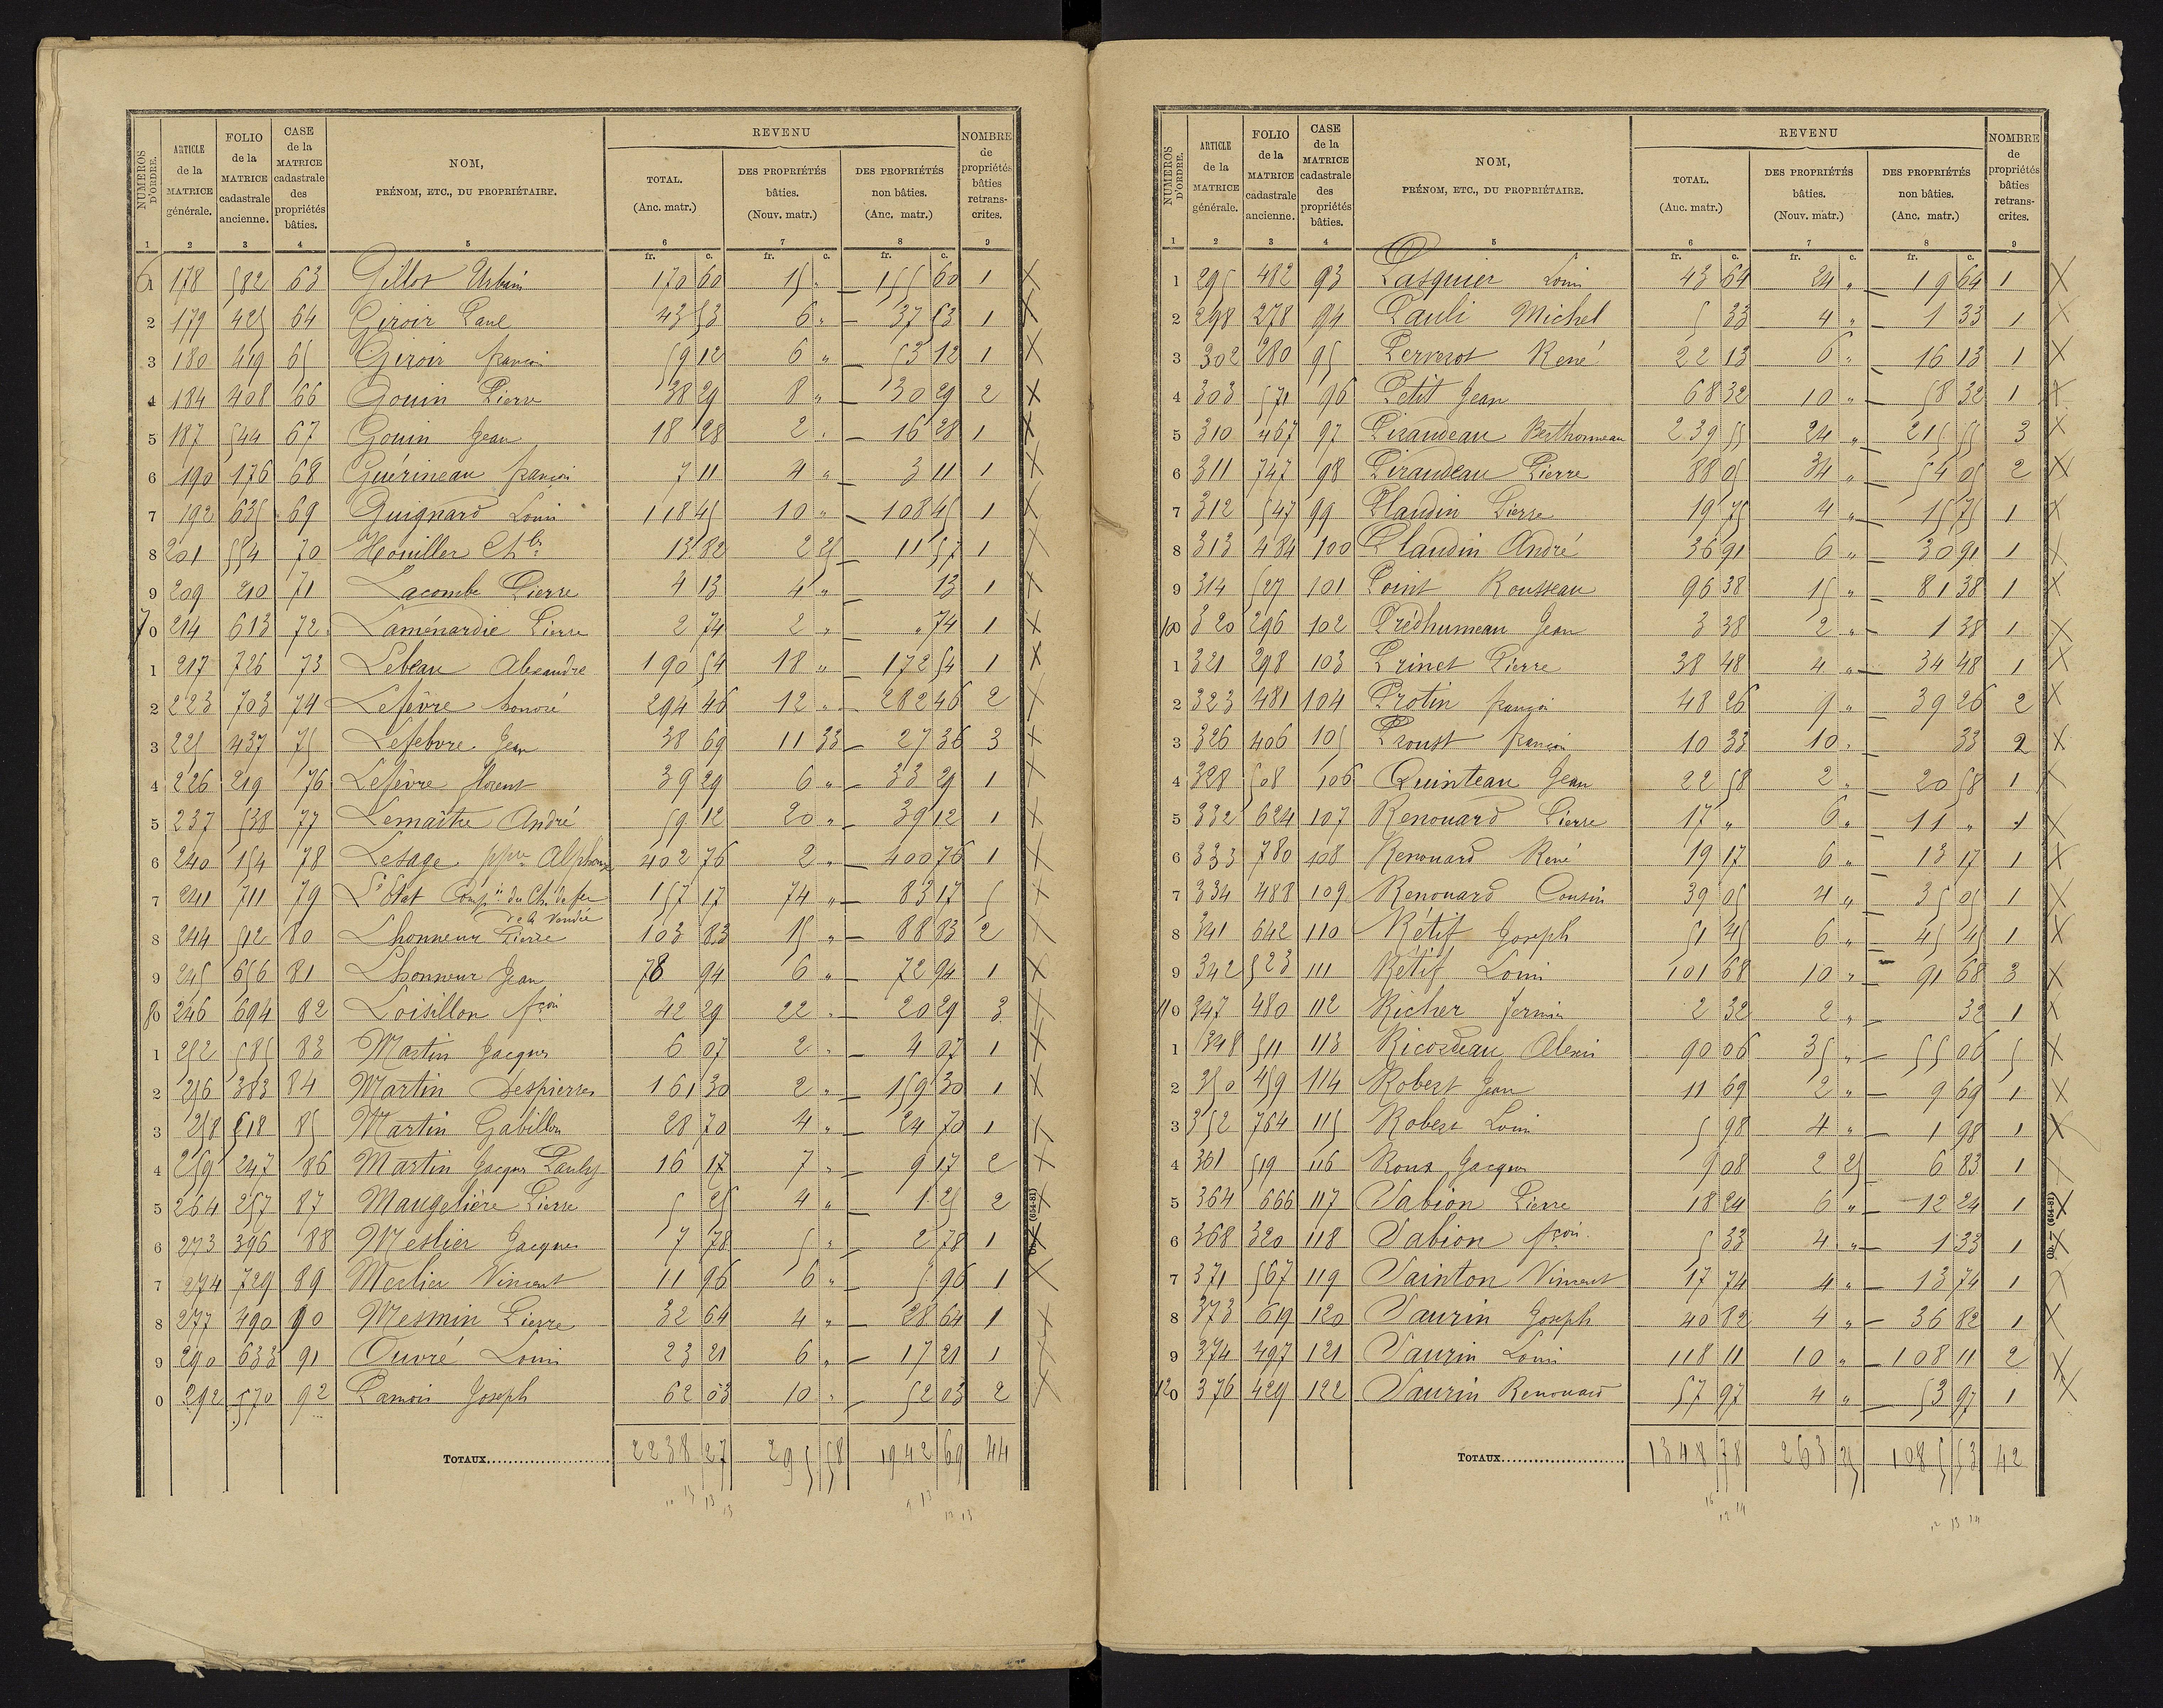 NUMÉROS D'ORDRE. | ARTICLE de la MATRICE générale. | FOLIO de la MATRICE cadastrale ancienne. | CASE de la MATRICE cadastrale des propriétés bâties. | NOM, PRÉNOM, ETC., DU PROPRIÉTAIRE. | REVENU TOTAL. (Anc. matr.) | DES PROPRIÉTÉS bâties. (Nouv. matr.) | DES PROPRIÉTÉS non bâties. (Anc. matr.) | NOMBRE de propriétés bâties retranscrites.
1 2 3 4 5 6 7 8 9
fr. c. fr. c. fr. c.
61 178 582 63 Gillot Urbain 170 60 15 „ 155 60 1 X
2 179 425 64 Giroir Paul 43 53 6 „ 37 53 1 X
3 180 419 65 Giroir françois 59 12 6 „ 53 12 1 X
4 184 408 66 Gouin Pierre 38 29 8 „ 30 29 2 X
5 187 544 67 Gouin Jean 18 28 2 „ 16 28 1 X
6 190 176 68 Guérineau françois 7 11 4 „ 3 11 1 X
7 192 635 69 Guignard Louis 118 45 10 „ 108 45 1 X
8 201 554 70 Houiller Chles 13 82 2 25 11 57 1 X
9 209 210 71 Lacombe Pierre 4 13 4 „ 13 1 X
70 214 613 72 Laménardie Pierre 2 74 2 „ „ 74 1 X
1 217 726 73 Lebeau Alexandre 190 54 18 „ 172 54 1 X
2 223 703 74 Lefèvre honoré 294 46 12 „ 282 46 2 X
3 225 437 75 Lefebvre Jean 38 69 11 33 27 36 3 X
4 226 219 76 Lefèvre florent 39 29 6 „ 33 29 1 X
5 237 538 77 Lemaître André 59 12 20 „ 39 12 1 X
6 240 154 78 Lesage Alphonse 402 76 2 „ 400 76 1 X
7 241 711 79 L'Etat Compie du Ch. de fer 157 17 74 „ 83 17 5 X
de la Vendée
8 244 512 80 Lhonneur Pierre 103 83 15 „ 88 83 2 X
9 245 656 81 Lhonneur Jean 78 94 6 „ 72 94 1 X
80 246 694 82 Loisillon fçois 42 29 22 „ 20 29 3 X
1 252 585 83 Martin Jacques 6 07 2 „ 4 07 1 X
2 256 383 84 Martin Despierres 161 30 2 „ 159 30 1 X
3 258 518 85 Martin Gabillon 28 70 4 „ 24 70 1 X
4 259 247 86 Martin Jacques Pauly 16 17 7 „ 9 17 2 X
5 264 257 87 Maugelière Pierre 5 25 4 „ 1 25 2 X
6 273 396 88 Meslier Jacques 7 78 5 „ 2 78 1 X
7 274 729 89 Meslier Vincent 11 96 6 „ 5 96 1 X
8 277 490 90 Mesmin Pierre 32 64 4 „ 28 64 1 X
9 290 633 91 Ouvré Louis 23 21 6 „ 17 21 1 X
0 292 570 92 Pamois Joseph 62 03 10 „ 52 03 2 X
TOTAUX 2238 27 295 58 1942 69 44
(654-81)
NUMÉROS D'ORDRE. | ARTICLE de la MATRICE générale. | FOLIO de la MATRICE cadastrale ancienne. | CASE de la MATRICE cadastrale des propriétés bâties. | NOM, PRÉNOM, ETC., DU PROPRIÉTAIRE. | REVENU TOTAL. (Anc. matr.) | DES PROPRIÉTÉS bâties. (Nouv. matr.) | DES PROPRIÉTÉS non bâties. (Anc. matr.) | NOMBRE de propriétés bâties retranscrites.
1 2 3 4 5 6 7 8 9
fr. c. fr. c. fr. c.
1 295 482 93 Pasquier Louis 43 64 24 „ 19 64 1 X
2 298 278 94 Pauli Michel 5 33 4 „ 1 33 1 X
3 302 280 95 Perverot René 22 13 6 „ 16 13 1 X
4 303 571 96 Petit Jean 68 32 10 „ 58 32 1 X
5 310 467 97 Piraudeau Berthonneau 239 55 24 „ 215 55 3 X
6 311 747 98 Piraudeau Pierre 88 05 34 „ 54 05 2 X
7 312 547 99 Plaudin Pierre 19 75 4 „ 15 75 1 X
8 313 484 100 Plaudin André 36 91 6 „ 30 91 1 X
9 314 527 101 Point Rousseau 96 38 15 „ 81 38 1 X
100 320 296 102 Prédhumeau Jean 3 38 2 „ 1 38 1 X
1 321 298 103 Prinet Pierre 38 48 4 „ 34 48 1 X
2 323 481 104 Protin françois 48 26 9 „ 39 26 2 X
3 326 406 105 Proust françois 10 33 10 „ 33 2 X
4 328 508 106 Quinteau Jean 22 58 2 „ 20 58 1 X
5 332 624 107 Renouard Pierre 17 „ 6 „ 11 „ 1 X
6 333 780 108 Renouard René 19 17 6 „ 13 17 1 X
7 334 488 109 Renouard Cousin 39 05 4 „ 35 05 1 X
8 341 642 110 Rétif Joseph 51 45 6 „ 45 45 1 X
9 342 523 111 Rétif Louis 101 68 10 „ 91 68 3 X
110 347 480 112 Richer fermin 2 32 2 „ 32 1 X
1 348 511 113 Ricordeau Alexis 90 06 35 „ 55 06 5 X
2 350 459 114 Robert Jean 11 69 2 „ 9 69 1 X
3 352 764 115 Robert Louis 5 98 4 „ 1 98 1 X
4 361 519 116 Roux Jacques 9 08 2 25 6 83 1 X
5 364 666 117 Sabion Pierre 18 24 6 „ 12 24 1 X
6 368 320 118 Sabion fçois 5 33 4 „ 1 33 1 X
7 371 567 119 Sainton Vincent 17 74 4 „ 13 74 1 X
8 373 619 120 Saurin Joseph 40 82 4 „ 36 82 1 X
9 374 497 121 Saurin Louis 118 11 10 „ 108 11 2 X
120 376 429 122 Saurin Renouard 57 97 4 „ 53 97 1 X
TOTAUX 1348 78 263 25 1085 53 42
(654-81)